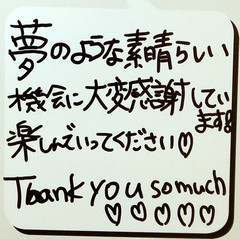 夢のような素晴らしい
機会に大変感謝してい
ます!!
楽しんでいってください♡
Thank you so much
♡♡♡♡♡